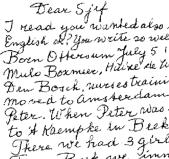 Dear Sjef
I read you wanted also
English ok? You write so wel
Born Ottersum July 5 1
Mulo Boxmeer, Huize de W
Den Bosch, nurses traini
moved to Amsterdam
Peter. When Peter was
to A Kaempke in Beek
There we had 3 girl